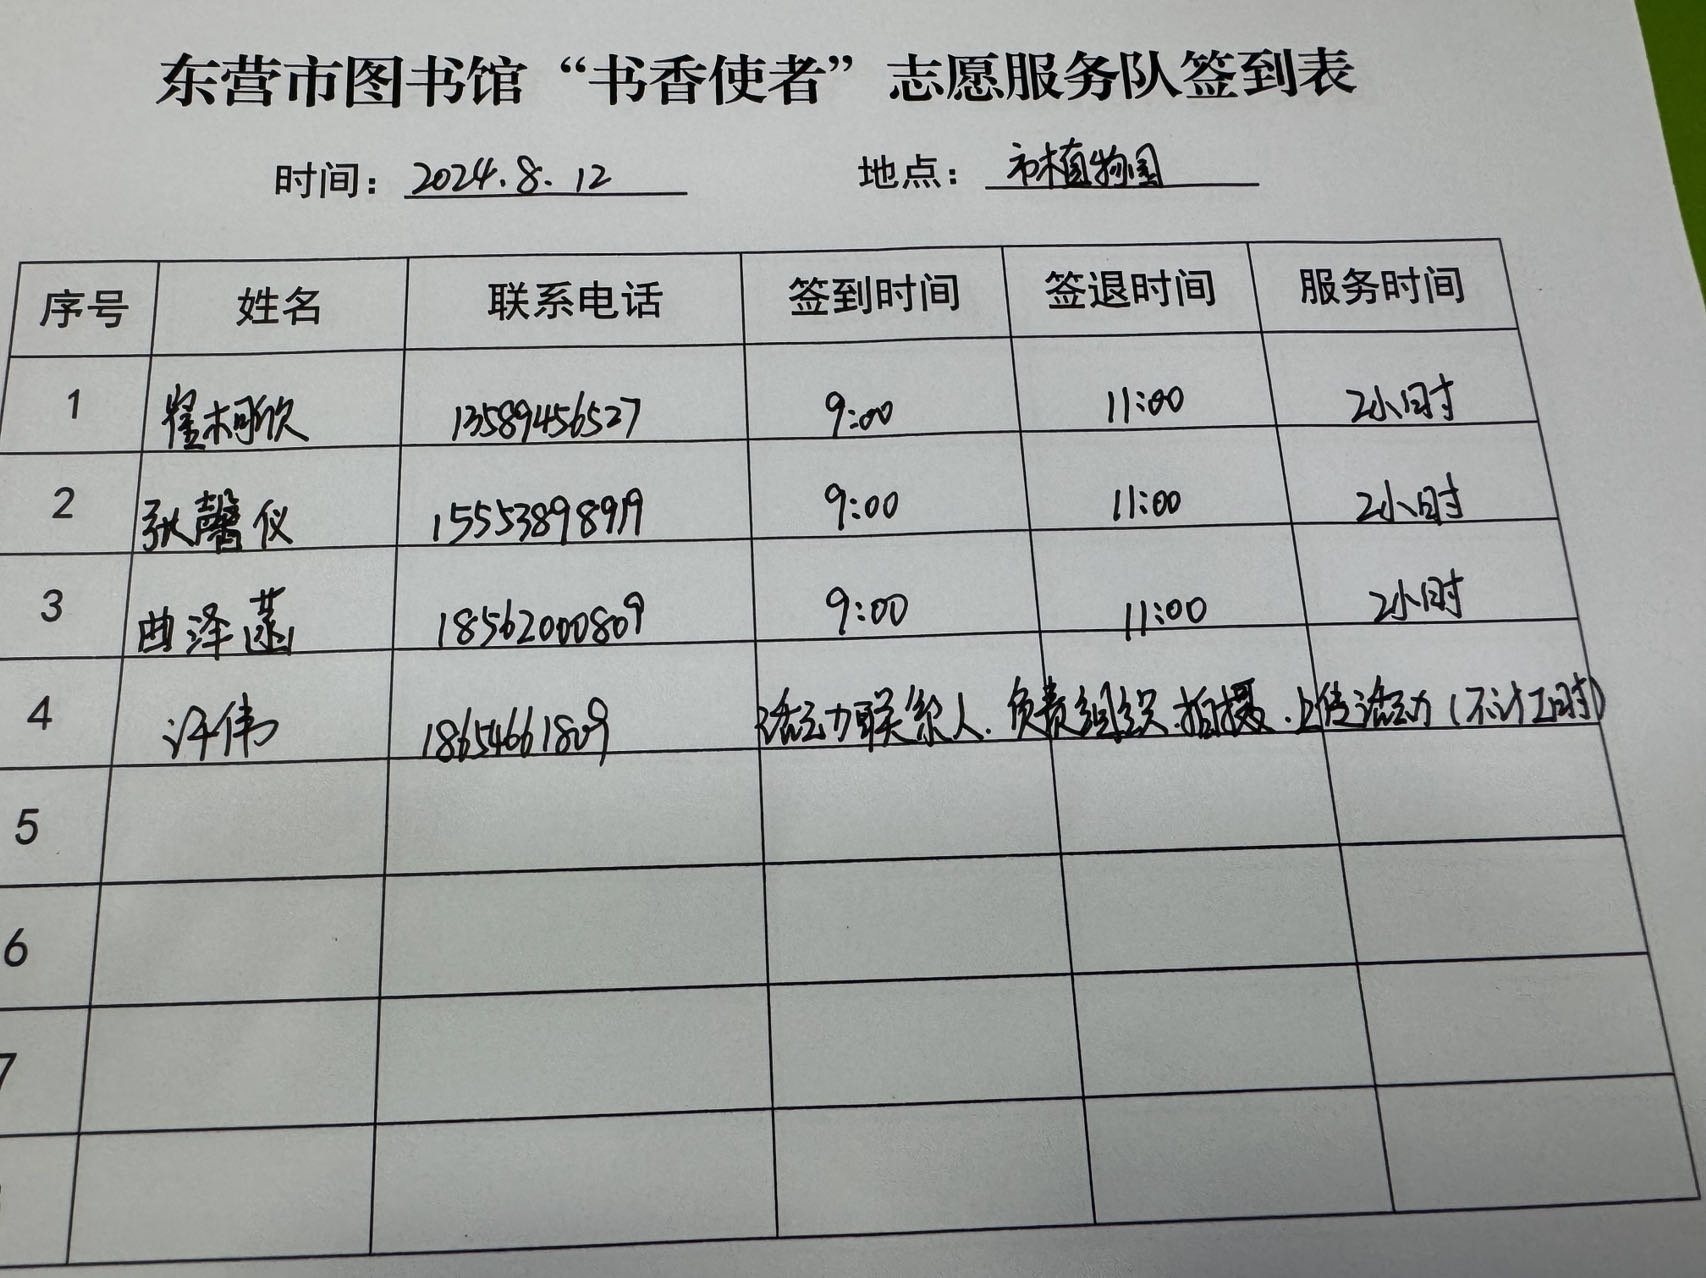 东营市图书馆“书香使者”志愿服务队签到表
时间：2024.8.12 地点：市植物园
序号 姓名 联系电话 签到时间 签退时间 服务时间
1 崔柯欣 13589456527 9:00 11:00 2小时
2 张馨仪 15553898919 9:00 11:00 2小时
3 曲泽菡 18562000809 9:00 11:00 2小时
4 许伟 18654661809 活动联系人.负责组织.拍摄.上传活动(不计工时)
5
6
7